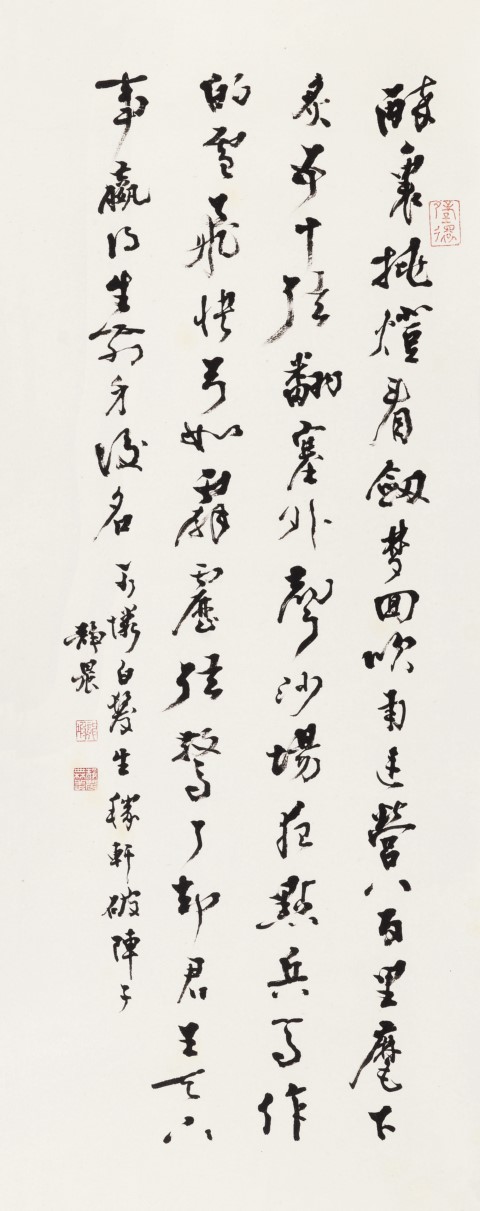 醉裏挑燈看劍梦回吹角連營八百里麾下
炙五十弦翻塞外聲沙場秋點兵馬作
的盧飛快弓如霹靂弦驚了却君王天下
事贏得生前身後名可憐白髮生稼軒破陣子
靜農